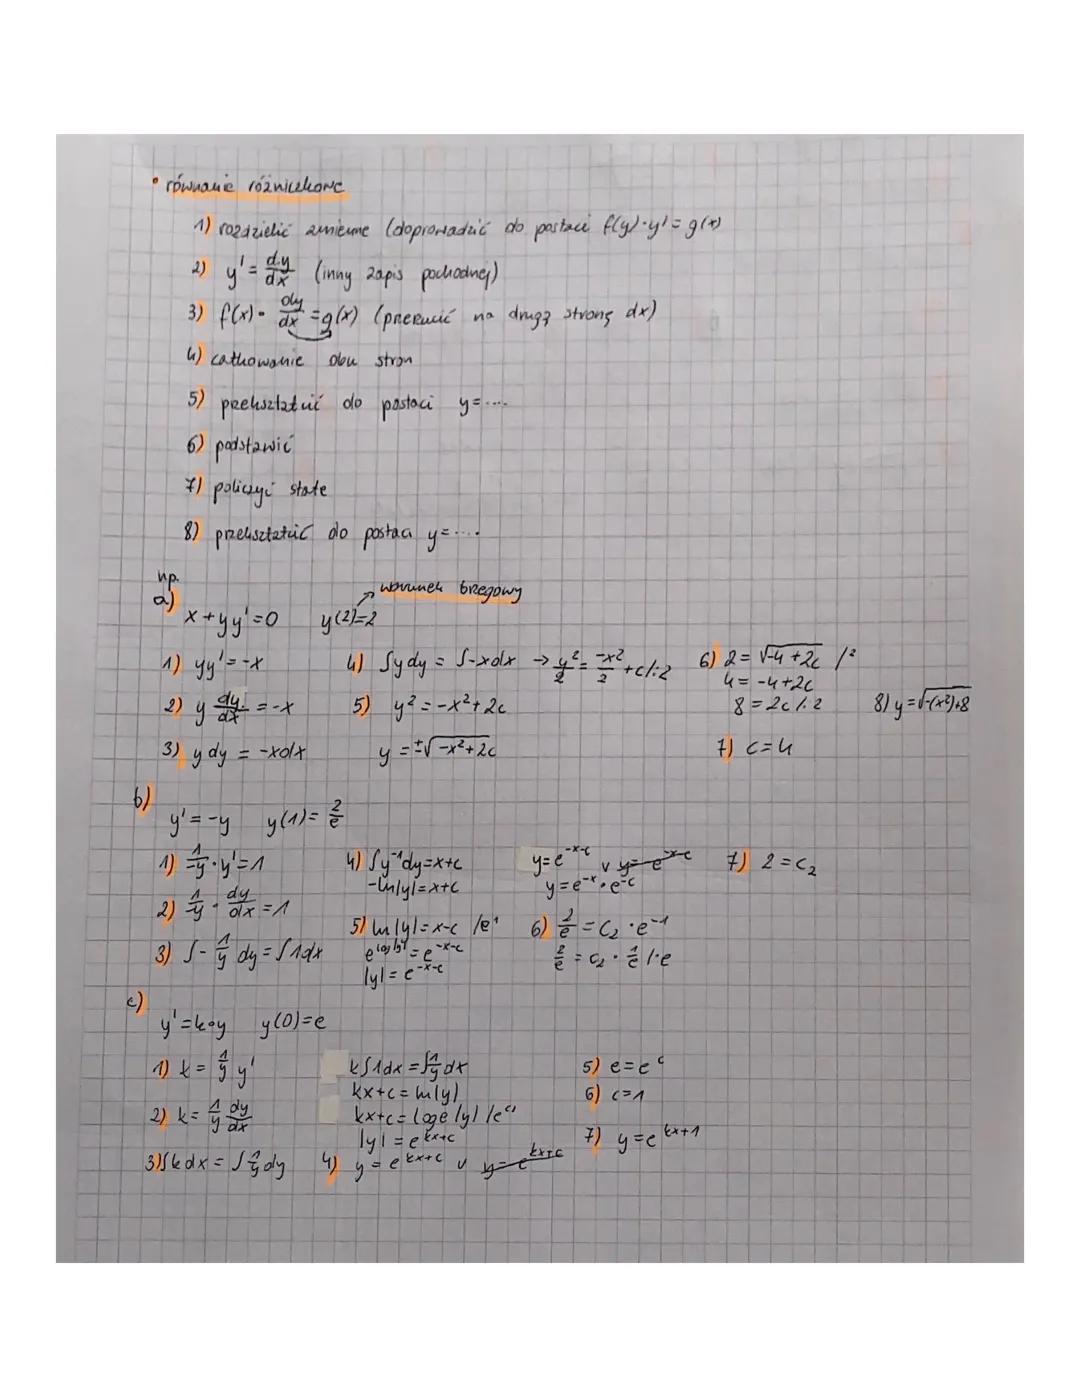 • równanie różniczkowe
1) rozdzielić zmienne (doprowadzić do postaci f(y)·y' = g(x)
2) y' = dy/dx (inny zapis pochodnej)
3) f(x)· dy/dx = g(x) (przerzucić na drugą stronę dx)
4) całkowanie obu stron
5) przekształcić do postaci y=....
6) podstawić
7) policzyć stałe
8) przekształcić do postaci y=....
np.
a) → warunek brzegowy
x+yy'=0 y(2)=2
1) yy'=-x
2) y dy/dx = -x
3) y dy = -xdx
4) ∫ydy = ∫-xdx → y²/2 = -x²/2 +c /·2
5) y² = -x²+2c
y = ±√-x²+2c
6) 2 = √-4+2c /²
4 = -4+2c
8 = 2c /:2
7) c=4
8) y=√-(x²)+8
b)
y'=-y y(1)= 2/e
1) 1/-y · y'=1
2) 1/-y · dy/dx = 1
3) ∫- 1/y dy = ∫1dx
4) ∫y⁻¹dy=x+c
-ln|y|=x+c
5) ln|y|=x-c /e¹
e^log|y| = e^-x-c
|y| = e^-x-c
y=e^-x-c v y=-e^-x-c
y=e^-x · e^-c
6) 2/e = C₂ · e⁻¹
2/e = c₂ · 1/e /·e
7) 2 = c₂
c)
y'=k·y y(0)=e
1) k = 1/y y'
2) k = 1/y dy/dx
3) ∫kdx = ∫1/y dy
k∫1dx = ∫1/y dx
kx+c = ln|y|
kx+c = loge|y| /e^c)
|y| = e^kx+c
4) y = e^kx+c v y=-e^kx+c
5) e=e^c
6) c=1
7) y=e^kx+1